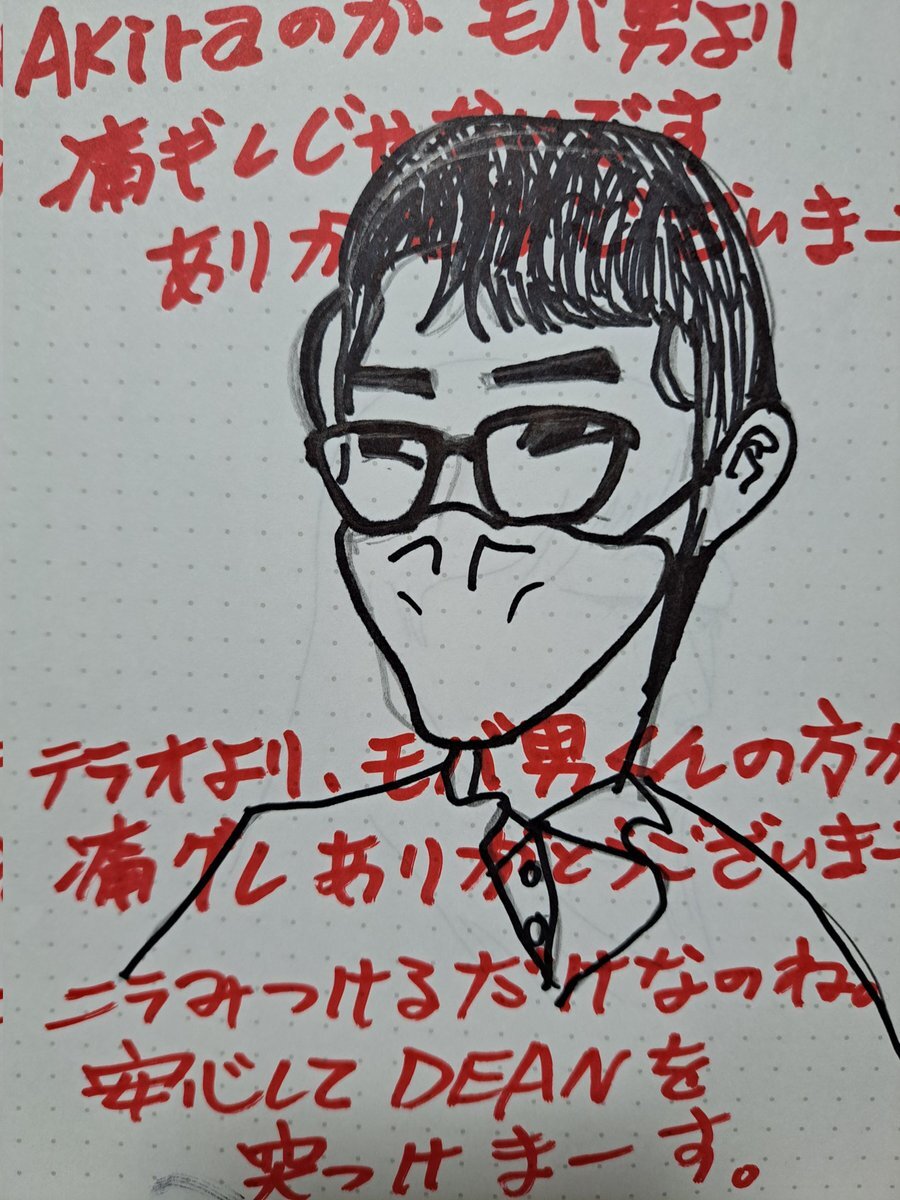 Akiraのが、モバ男より
痛ギレじゃないです
ありがとうございまー
テラオより、モバ男くんの方が
痛グレありがとうございまー
ニラみつけるだけなのね。
安心してDEANを
突っけまーす。